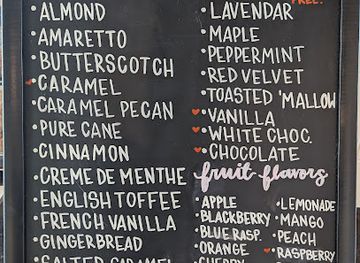 FREE!
• ALMOND
• AMARETTO
• BUTTERSCOTCH
• CARAMEL
• CARAMEL PECAN
• PURE CANE
• CINNAMON
• CREME DE MENTHE
• ENGLISH TOFFEE
• FRENCH VANILLA
• GINGERBREAD
• SALTED CARAMEL
• LAVENDAR
• MAPLE
• PEPPERMINT
• RED VELVET
• TOASTED 'MALLOW
♥ • VANILLA
♥ • WHITE CHOC.
♥ • CHOCOLATE
fruit flavors
• APPLE
• BLACKBERRY
• BLUE RASP.
• ORANGE
• CHERRY
• LEMONADE
• MANGO
• PEACH
♥ • RASPBERRY